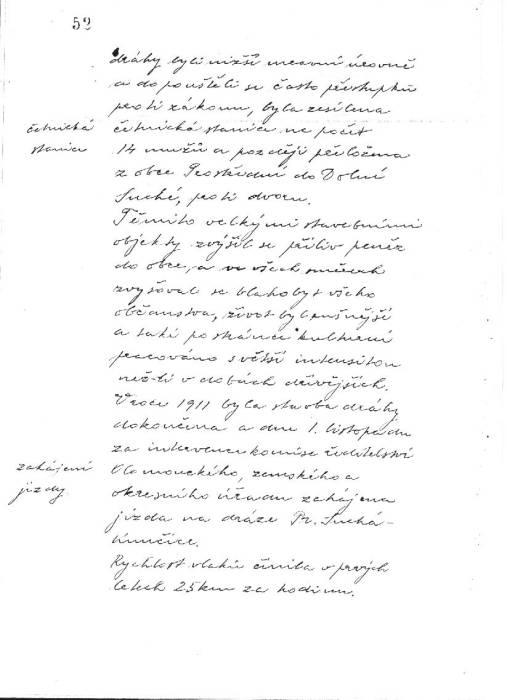 52
dráhy byli nižší mravní úrovně
a dopouštěli se často přestupků
proti zákonu, byla zesílena
četnická
stanice
četnická stanice na počet
14 mužů a později přeložena
z obce Prostřední do Dolní
Suché, proti dvoru.
Těmito velkými stavebními
objekty zvýšil se příliv peněz
do obce, a ve všech směrech
zvyšoval se blahobyt všeho
občanstva, život byl rušnější
a také po stránce kulturní
pracováno s větší intensitou
nežli v dobách dřívějších.
V roce 1911 byla stavba dráhy
dokončena a dne 1. listopadu
za intervence komise ředitelství
zahájení
jízdy
Olomouckého, zemského a
okresního úřadu zahájena
jízda na dráze Pr. Suchá-
Kunčice.
Rychlost vlaků činila v prvých
letech 25km za hodinu.